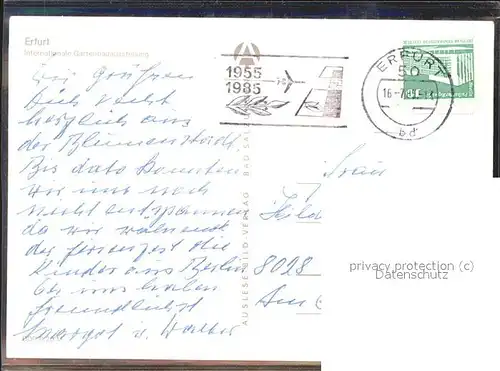 Erfurt
Internationale Gartenbauausstellung
1955
1985
ERFURT
50
16.-7.
bd
10
Wir grüßen
Dich recht
herzlich aus
der Blumenstadt.
Bis dato konnten
wir uns noch
nicht entspannen
da wir während
der Ferienzeit die
Kinder aus Berlin
bei uns haben
freundlichst
Margot u. Walter
AUSLESE-BILD-VERLAG BAD SAL
Frau
Hild
8028
Am
privacy protection (c)
Datenschutz